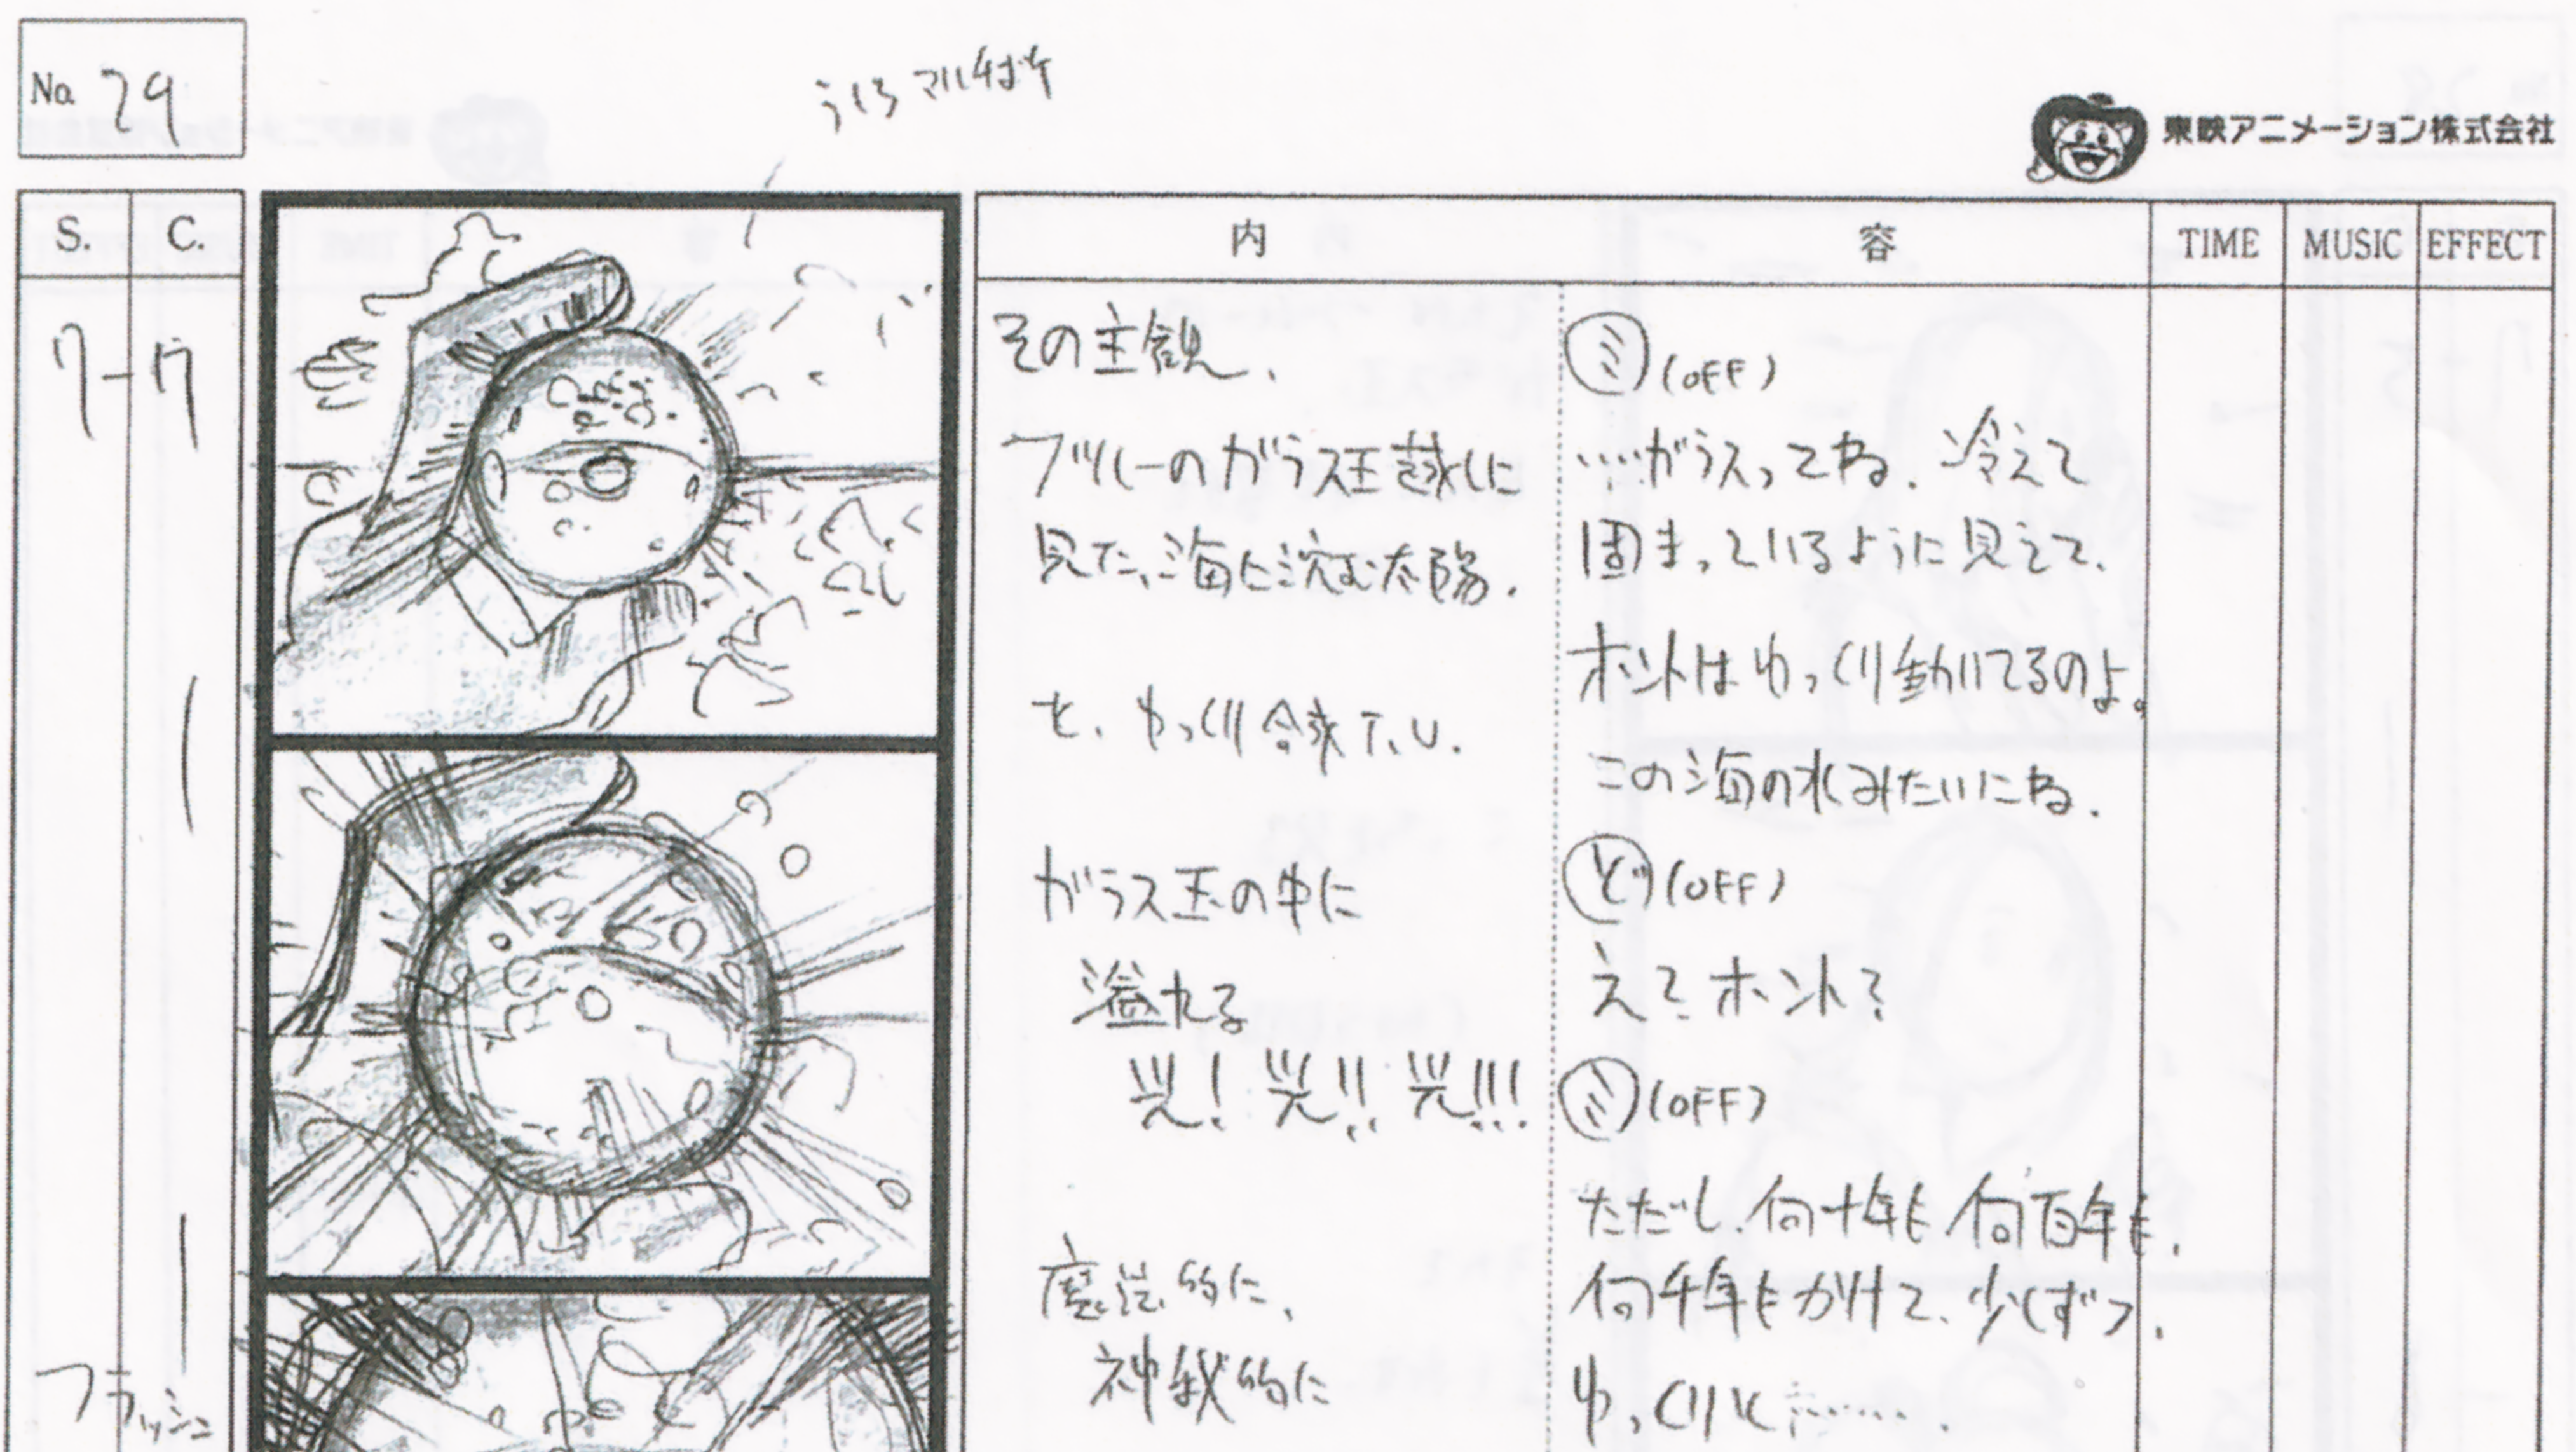 No. 29
うしろマルチボケ
東映アニメーション株式会社
S. C. 内 容 TIME MUSIC EFFECT
7-7
その主観、
ブルーのガラス玉越しに
見た、海に沈む太陽.
と、ゆっくり合成T.U.
ガラス玉の中に
溢れる
光! 光!! 光!!!
魔法的に、
神秘的に
フラッシュ
ミ(OFF)
…ガラスってね、冷えて
固まっているように見えて、
ホントはゆっくり動いてるのよ。
この海の水みたいにね.
ど(OFF)
え? ホント?
ミ(OFF)
ただし、何十年も何百年も、
何千年もかけて、少しずつ、
ゆっくりと…….